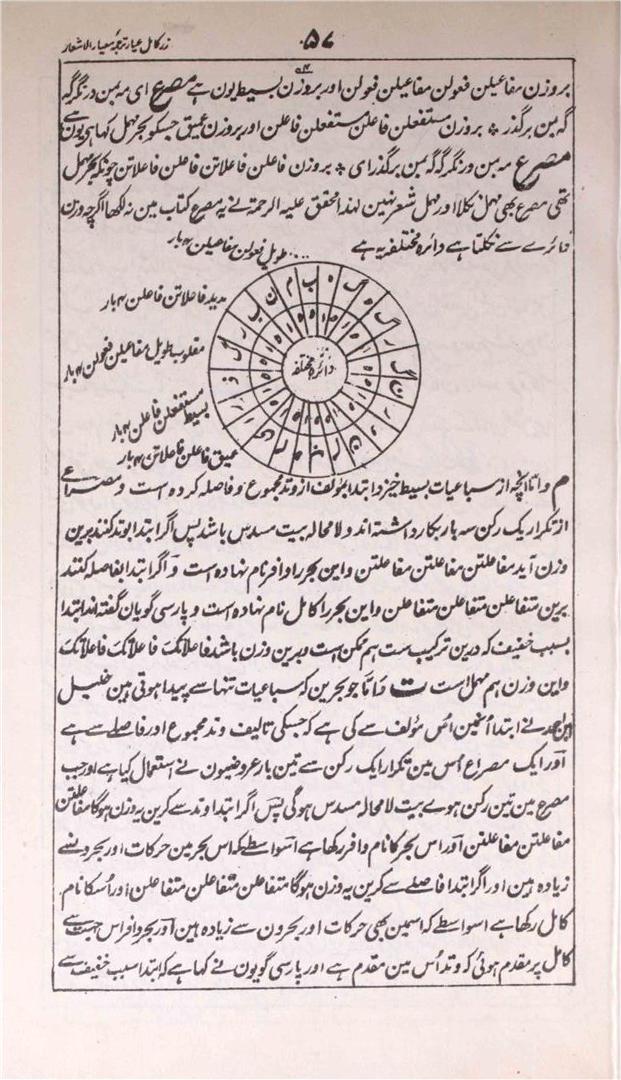 زر کامل عیار ترجمہ معیار الاشعار
۵۷
بروزن مفاعیلن فعولن مفاعیلن فعولن اور بروزن بسیط یون ہے مصرع ای مہ بمن درنگر گہ
گہ بمن برگذر * بروزن مستفعلن فاعلن مستفعلن فاعلن اور بروزن عمیق جسکو بحر مہمل کہا ہی یون ہے
مصرع مہ بمن درنگر گہ گہ بمن برگذر ای * بروزن فاعلن فاعلاتن فاعلن فاعلاتن چونکہ بحر مہمل
تھی مصرع بھی مہمل نکلا اور مہمل شعر نہین لہذا محقق علیہ الرحمۃ نے یہ مصرع کتاب مین نہ لکھا اگرچہ وزن
دائرے سے نکلتا ہے دائرہ مختلفہ یہ ہے
طویل فعولن مفاعیلن ۴ بار
مدید فاعلاتن فاعلن ۴ بار
مقلوب طویل مفاعیلن فعولن ۴ بار
بسیط مستفعلن فاعلن ۴ بار
عمیق فاعلن فاعلاتن ۴ بار
دائرہ مختلفہ
م واما آنچہ از سباعیات بسیط خیزد ابتدا بمؤلف از وتد مجموع و فاصلہ کردہ است و مصراعی
از تکرار یک رکن سہ بار بکار داشتہ اند و لا محالہ بیت مسدس باشد پس اگر ابتدا بوتد کنند برین
وزن آید مفاعلتن مفاعلتن مفاعلتن و این بحر را وافر نام نہادہ است و اگر ابتدا بفاصلہ کنند
برین متفاعلن متفاعلن متفاعلن و این بحر را کامل نام نہادہ است و پارسی گویان گفتہ اند ابتدا
بسبب خفیف کہ درین ترکیب ست ہم ممکن است و برین وزن باشد فاعلاتک فاعلاتک فاعلاتک
و این وزن ہم مہمل است ت و امّا جو بحرین کہ سباعیات تنہا سے پیدا ہوتی ہین خلیل
ابن احمد نے ابتدا اُنھین اُس مؤلف سے کی ہے کہ جسکی تالیف وتد مجموع اور فاصلے سے ہے
اور ایک مصراع اُس مین تکرار ایک رکن سے تین بار عروضیون نے استعمال کیا ہے اور جب
مصرع مین تین رکن ہوے بیت لا محالہ مسدس ہوگی پس اگر ابتدا وتد سے کرین یہ وزن ہوگا مفاعلتن
مفاعلتن مفاعلتن اور اس بحر کا نام وافر رکھا ہے اسواسطے کہ اس بحر مین حرکات اور بحرونسے
زیادہ ہین اور اگر ابتدا فاصلے سے کرین یہ وزن ہوگا متفاعلن متفاعلن متفاعلن اور اُسکا نام
کامل رکھا ہے اسواسطے کہ اسمین بھی حرکات اور بحرون سے زیادہ ہین اور بحر وافر اس جہت سے
کامل پر مقدم ہوئی کہ وتد اُس مین مقدم ہے اور پارسی گویون نے کہا ہے کہ ابتدا سبب خفیف سے